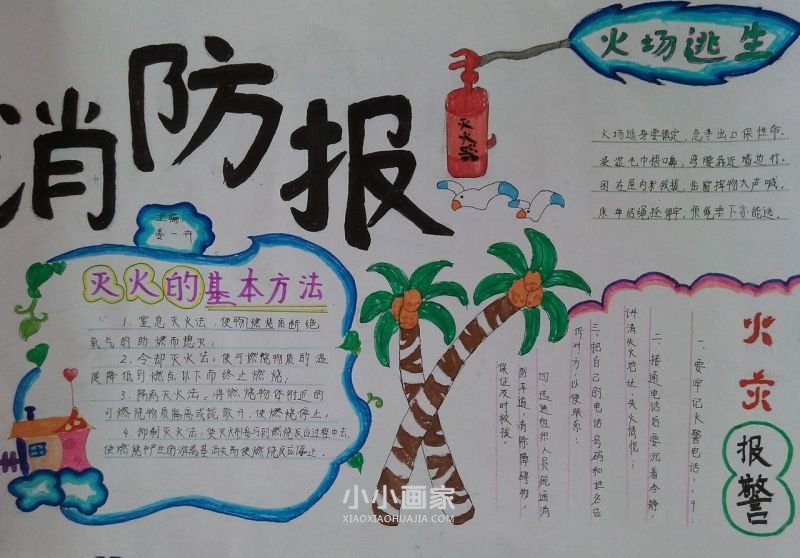 消防报
主编:
姜一卉
灭火器
火场逃生
火场逃身要镇定,急寻出口保性命。
浸湿毛巾捂口鼻,弯腰靠近墙边行。
困在屋内求救援,临窗挥物大声喊。
床单结绳拴牢,顺绳垂下亦能逃。
灭火的基本方法
1. 窒息灭火法:使物燃烧质断绝
氧气的助燃而熄灭;
2. 冷却灭火法:使可燃烧物质的温
度降低到燃点以下而终止燃烧;
3. 隔离灭火法:将燃烧物体附近的
可燃烧物质隔离或疏散开,使燃烧停止;
4. 抑制灭火法:使灭火剂参与到燃烧反应过程中去,
使燃烧中产生的游离基消失而使燃烧反应停止.
火灾
报警
一、要牢记火警电话119;
二、接通电话后要沉着冷静,
讲清失火地址,失火情况;
三、把自己的电话号码和姓名告
诉对方,以便联系;
四、迅速组织人员疏通消
防车道,清除障碍物,
保证及时救援。
小小画家
XIAOXIAOHUAJIA.COM